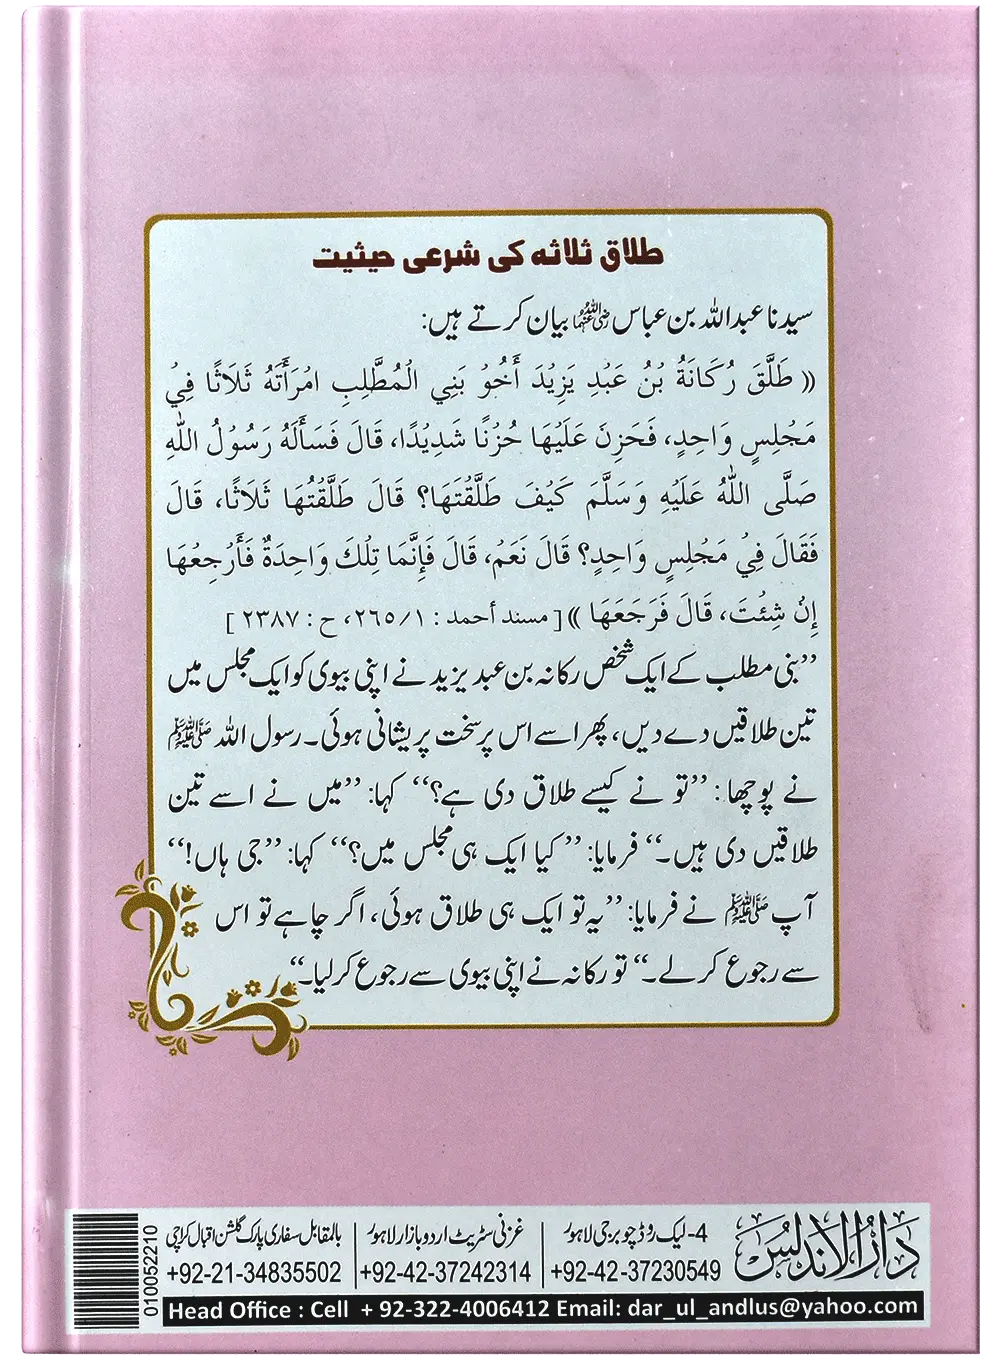 طلاق ثلاثہ کی شرعی حیثیت
سیدنا عبداللہ بن عباس رضی اللہ عنہما بیان کرتے ہیں:
« طَلَّقَ رُكَانَةُ بْنُ عَبْدِ يَزِيْدَ أَخُوْ بَنِي الْمُطَّلِبِ امْرَأَتَهُ ثَلَاثًا فِيْ
مَجْلِسٍ وَاحِدٍ، فَحَزِنَ عَلَيْهَا حُزْنًا شَدِيْدًا، قَالَ فَسَأَلَهُ رَسُوْلُ اللّٰهِ
صَلَّى اللّٰهُ عَلَيْهِ وَسَلَّمَ كَيْفَ طَلَّقْتَهَا؟ قَالَ طَلَّقْتُهَا ثَلَاثًا، قَالَ
فَقَالَ فِيْ مَجْلِسٍ وَاحِدٍ؟ قَالَ نَعَمْ، قَالَ فَإِنَّمَا تِلْكَ وَاحِدَةٌ فَأَرْجِعْهَا
إِنْ شِئْتَ، قَالَ فَرَجَعَهَا » [ مسند أحمد : ١/٢٦٥، ح : ٢٣٨٧ ]
”بنی مطلب کے ایک شخص رکانہ بن عبد یزید نے اپنی بیوی کو ایک مجلس میں
تین طلاقیں دے دیں، پھر اسے اس پر سخت پریشانی ہوئی۔ رسول اللہ ﷺ
نے پوچھا: ”تو نے کیسے طلاق دی ہے؟“ کہا: ”میں نے اسے تین
طلاقیں دی ہیں۔“ فرمایا: ”کیا ایک ہی مجلس میں؟“ کہا: ”جی ہاں!“
آپ ﷺ نے فرمایا: ”یہ تو ایک ہی طلاق ہوئی، اگر چاہے تو اس
سے رجوع کر لے۔“ تو رکانہ نے اپنی بیوی سے رجوع کر لیا۔“
دار الاندلس
4- لیک روڈ چوبرجی لاہور
+92-42-37230549
غزنی سٹریٹ اردو بازار لاہور
+92-42-37242314
بالمقابل سفاری پارک گلشن اقبال کراچی
+92-21-34835502
Head Office : Cell + 92-322-4006412 Email: dar_ul_andlus@yahoo.com
010052210